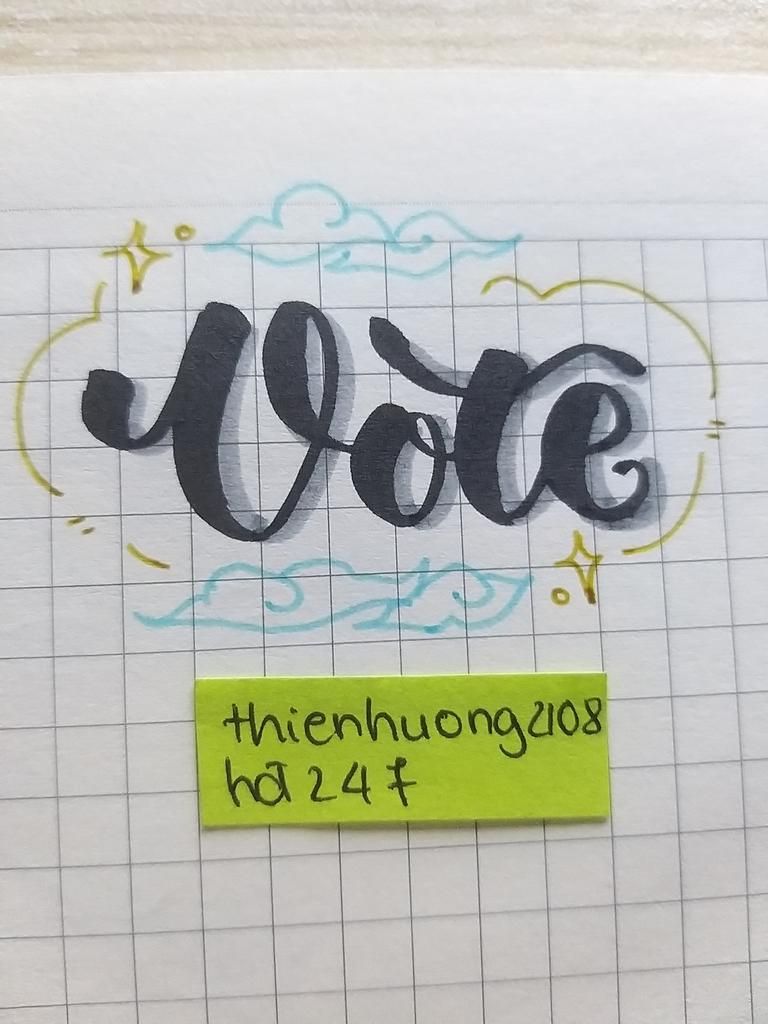 Vote
thienhuong2108
hoT 247